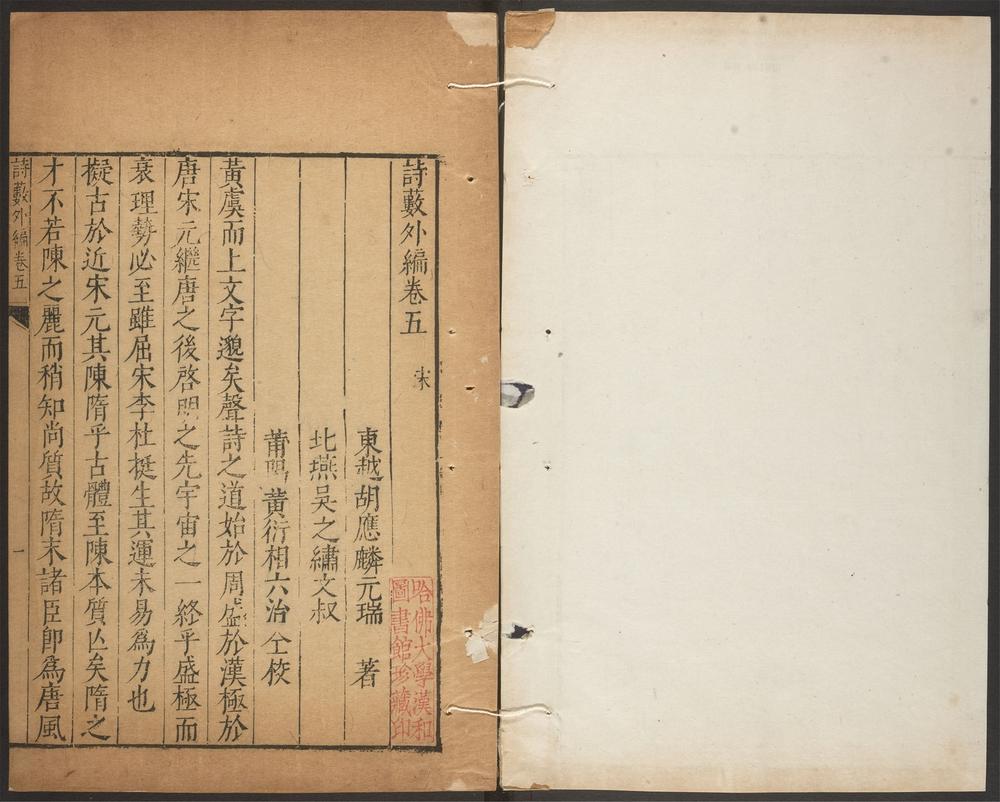 詩藪外編卷五 宋
東越胡應麟元瑞 著
北燕吳之繡文叔
莆陽黃衍相六治 仝校
黃虞而上文字邈矣聲詩之道始於周盛於漢極於
唐宋元繼唐之後啓明之先宇宙之一終乎盛極而
衰理勢必至雖屈宋李杜挺生其運未易爲力也
擬古於近宋元其陳隋乎古體至陳本質亾矣隋之
才不若陳之麗而稍知尚質故隋末諸臣卽爲唐風
詩藪外編卷五
一
哈佛大學漢和
圖書館珍藏印